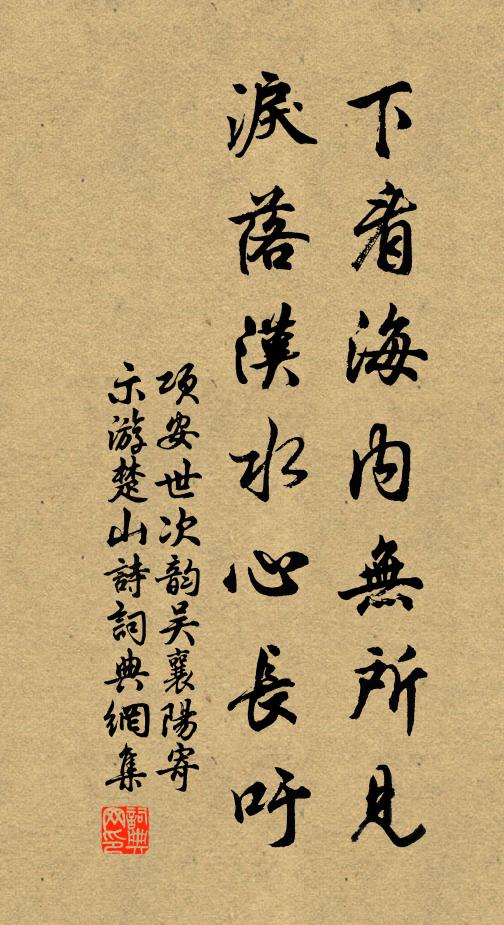 下看海内無所見
淚落漢水心長吁
項安世次韵吴襄陽寄
示游楚山詩詞典網集
詞典
网印